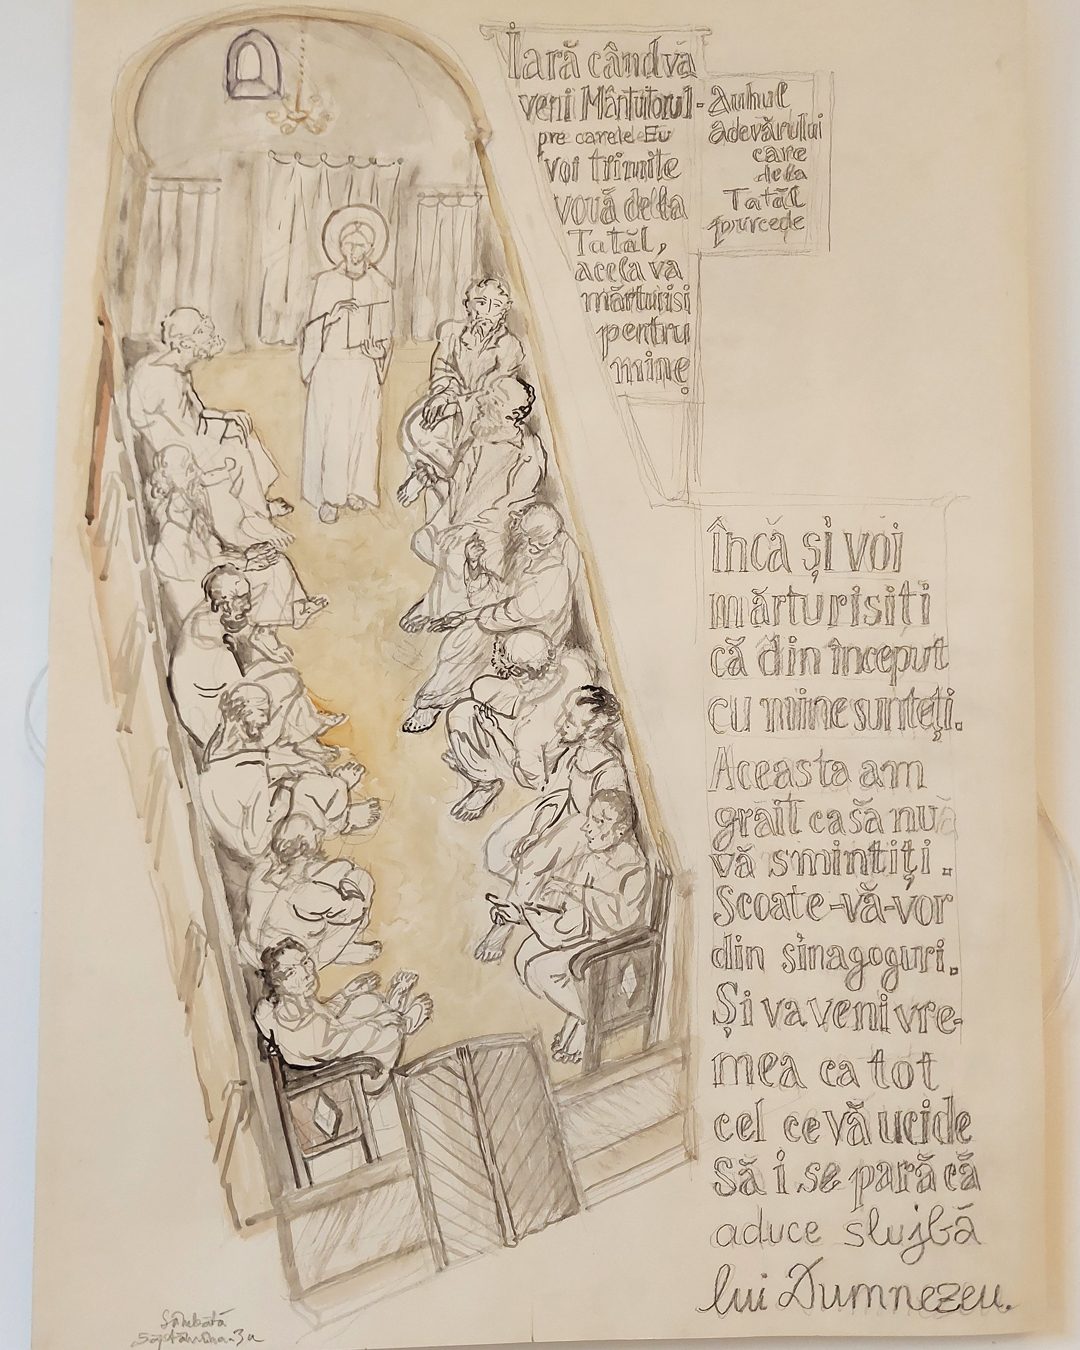 Iară când va
veni Mântuitorul-
pre carele Eu
voi trimite
vouă della
Tatăl,
acela va
mărturisi
pentru
mine
Duhul
adevărului
care
de la
Tatăl
purcede
Încă și voi
mărturisiti
că din început
cu mine sunteți.
Aceasta am
grăit ca să nu
vă smintiți.
Scoate-vă-vor
din sinagoguri.
Și va veni vre-
mea ca tot
cel ce vă ucide
Să i se pară că
aduce slujbă
lui Dumnezeu.
Sâmbătă